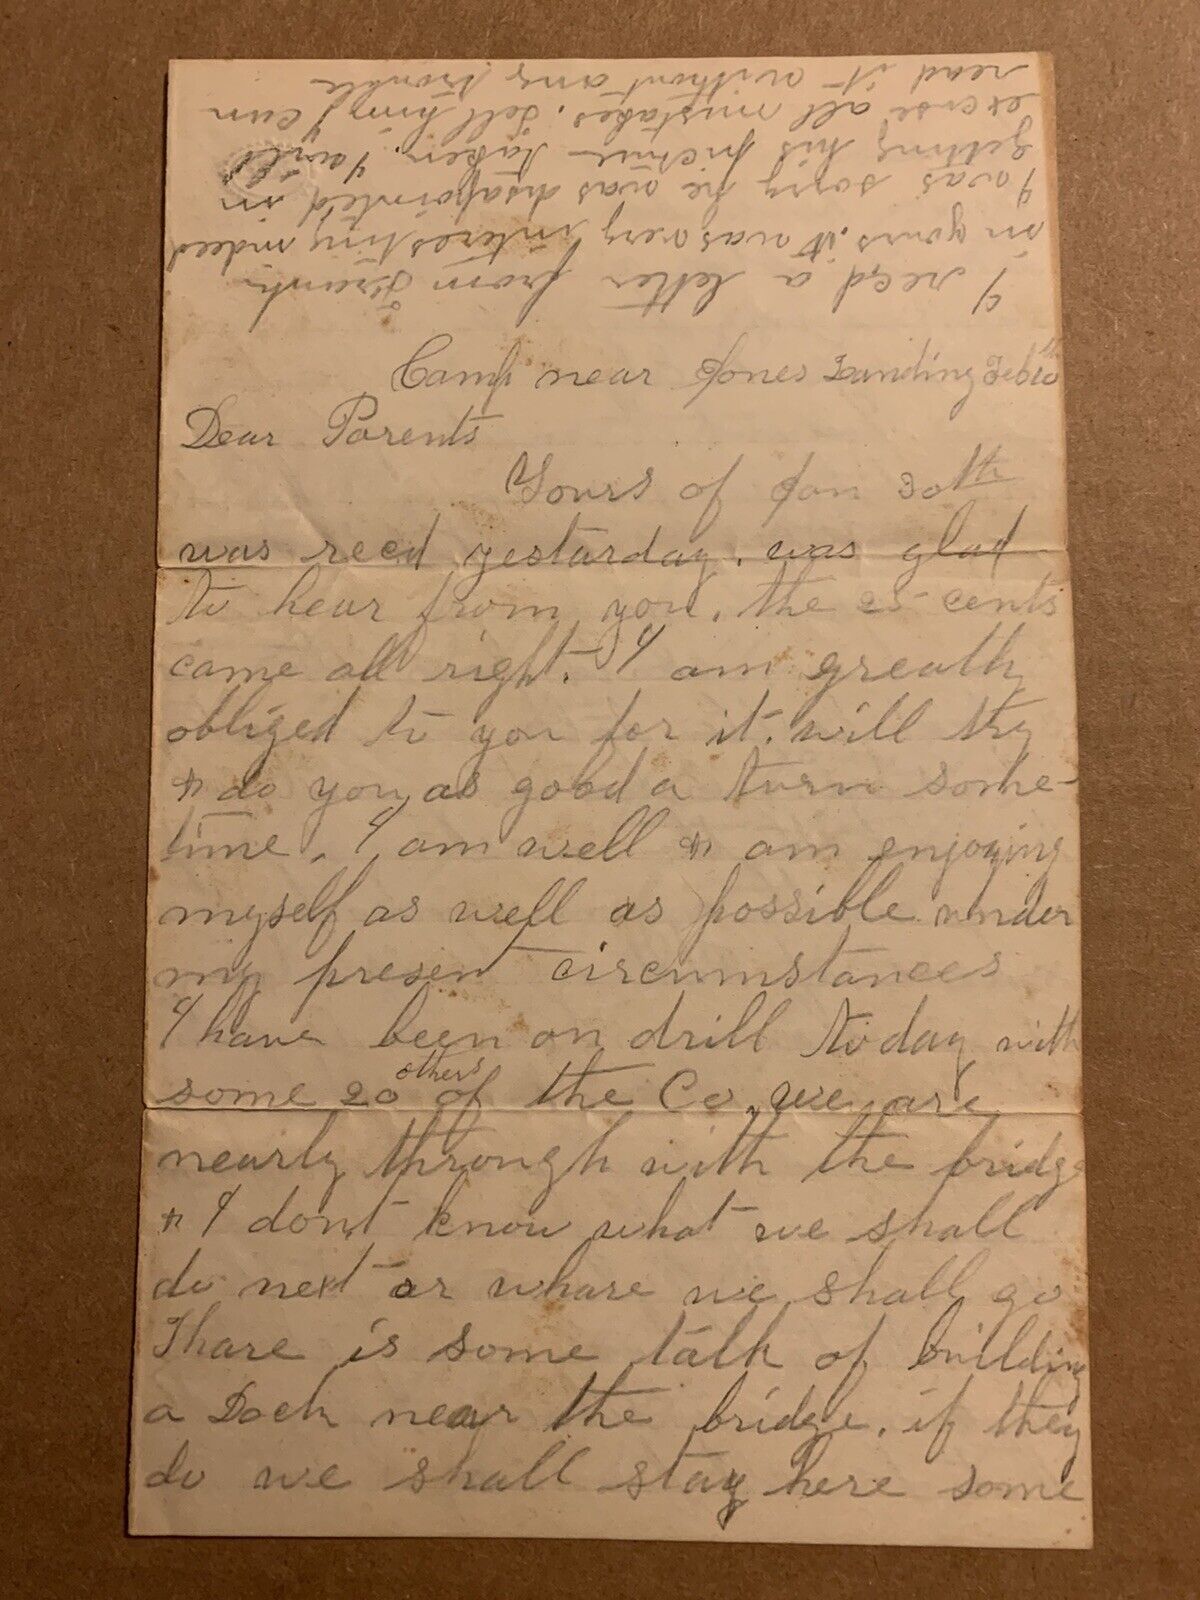 Camp near Jones Landing Feb
Dear Parents
Yours of Jan 30th
was recd yestarday. was glad
to hear from you. the 25 cents
came all right. I am greatly
obliged to you for it. will try
& do you as good a turn some-
time. I am well & am enjoying
myself as well as possible under
my present circumstances
I have been on drill today with
some 20 others of the Co. we are
nearly through with the bridge
& I dont know what we shall
do next or whare we shall go
Thare is some talk of building
a Dock near the bridge. if they
do we shall stay here some
I recd a letter from Frank
in yours. it was very interesting indeed
I was sorry he was disapointed in
getting his picture taken.
excuse all mistakes. tell him I can
read it without any trouble